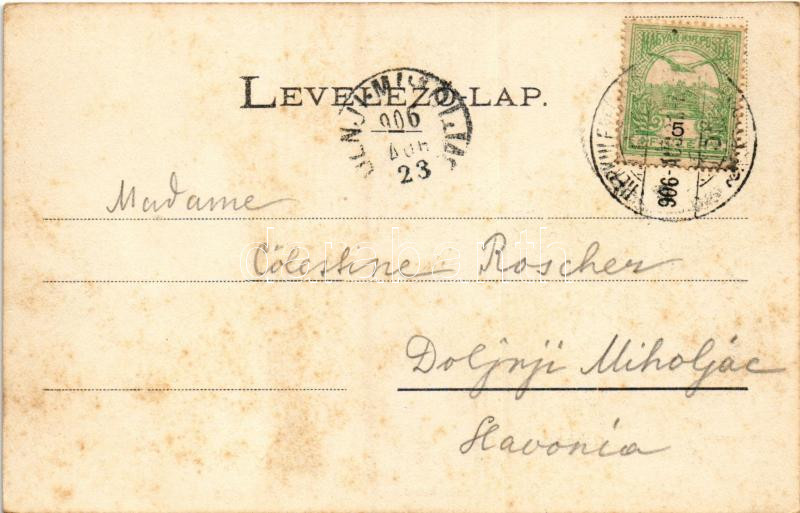 LEVELEZŐ-LAP.
MAGYAR KIR. POSTA
5
906
AUG
23
906
Madame
Cölestine Roscher
Doljnji Miholjác
Slavonia